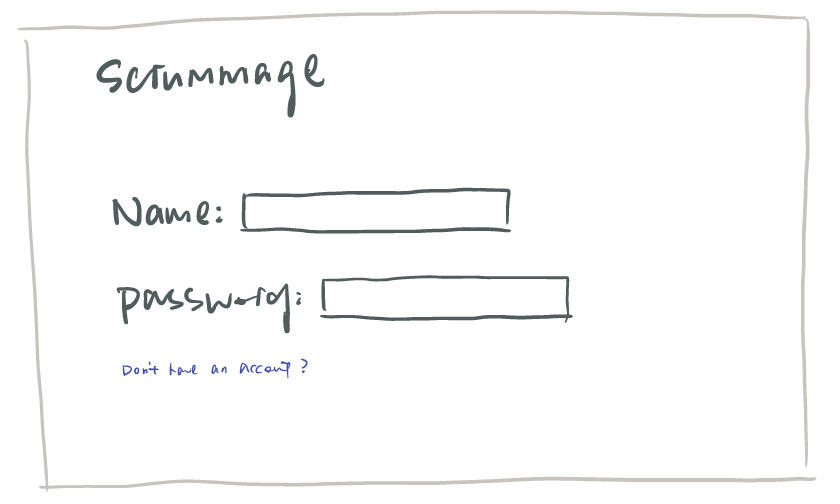 Scrummage
Name:
password:
Don't have an account?